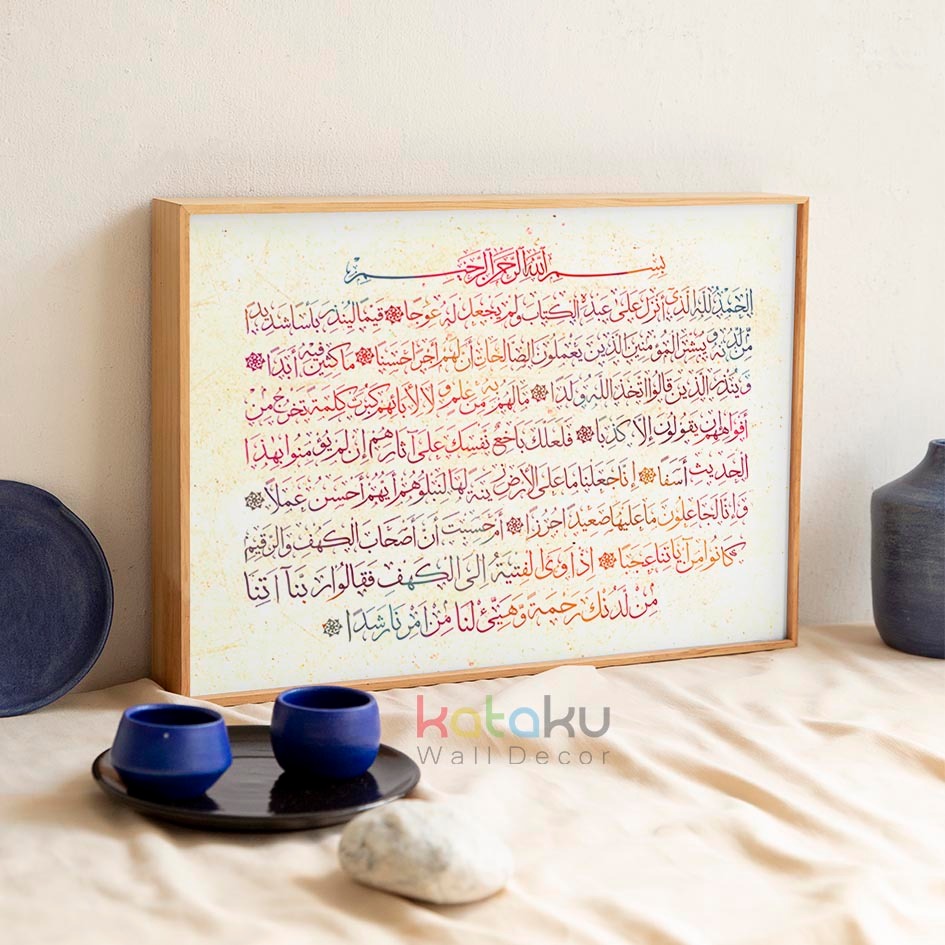 بِسْمِ اللهِ الرَّحْمٰنِ الرَّحِيْمِ
اَلْحَمْدُ لِلّٰهِ الَّذِيْ اَنْزَلَ عَلٰى عَبْدِهِ الْكِتَابَ وَلَمْ يَجْعَلْ لَهُ عِوَجًا ۞ قَيِّمًا لِيُنْذِرَ بَأْسًا شَدِيْدًا
مِنْ لَدُنْهُ وَيُبَشِّرَ الْمُؤْمِنِيْنَ الَّذِيْنَ يَعْمَلُوْنَ الصَّالِحَاتِ أَنَّ لَهُمْ أَجْرًا حَسَنًا ۞ مَاكِثِيْنَ فِيْهِ أَبَدًا ۞
وَيُنْذِرَ الَّذِيْنَ قَالُوا اتَّخَذَ اللهُ وَلَدًا ۞ مَا لَهُمْ بِهِ مِنْ عِلْمٍ وَلَا لِاٰبَائِهِمْ كَبُرَتْ كَلِمَةً تَخْرُجُ مِنْ
أَفْوَاهِهِمْ إِنْ يَقُوْلُوْنَ إِلَّا كَذِبًا ۞ فَلَعَلَّكَ بَاخِعٌ نَفْسَكَ عَلٰى آثَارِهِمْ إِنْ لَمْ يُؤْمِنُوْا بِهٰذَا
الْحَدِيْثِ أَسَفًا ۞ إِنَّا جَعَلْنَا مَا عَلَى الْأَرْضِ زِيْنَةً لَهَا لِنَبْلُوَهُمْ أَيُّهُمْ أَحْسَنُ عَمَلًا ۞
وَإِنَّا لَجَاعِلُوْنَ مَا عَلَيْهَا صَعِيْدًا جُرُزًا ۞ أَمْ حَسِبْتَ أَنَّ أَصْحَابَ الْكَهْفِ وَالرَّقِيْمِ
كَانُوْا مِنْ آيَاتِنَا عَجَبًا ۞ إِذْ أَوَى الْفِتْيَةُ إِلَى الْكَهْفِ فَقَالُوْا رَبَّنَا آتِنَا
مِنْ لَدُنْكَ رَحْمَةً وَهَيِّئْ لَنَا مِنْ أَمْرِنَا رَشَدًا ۞
kataku
Wall Decor